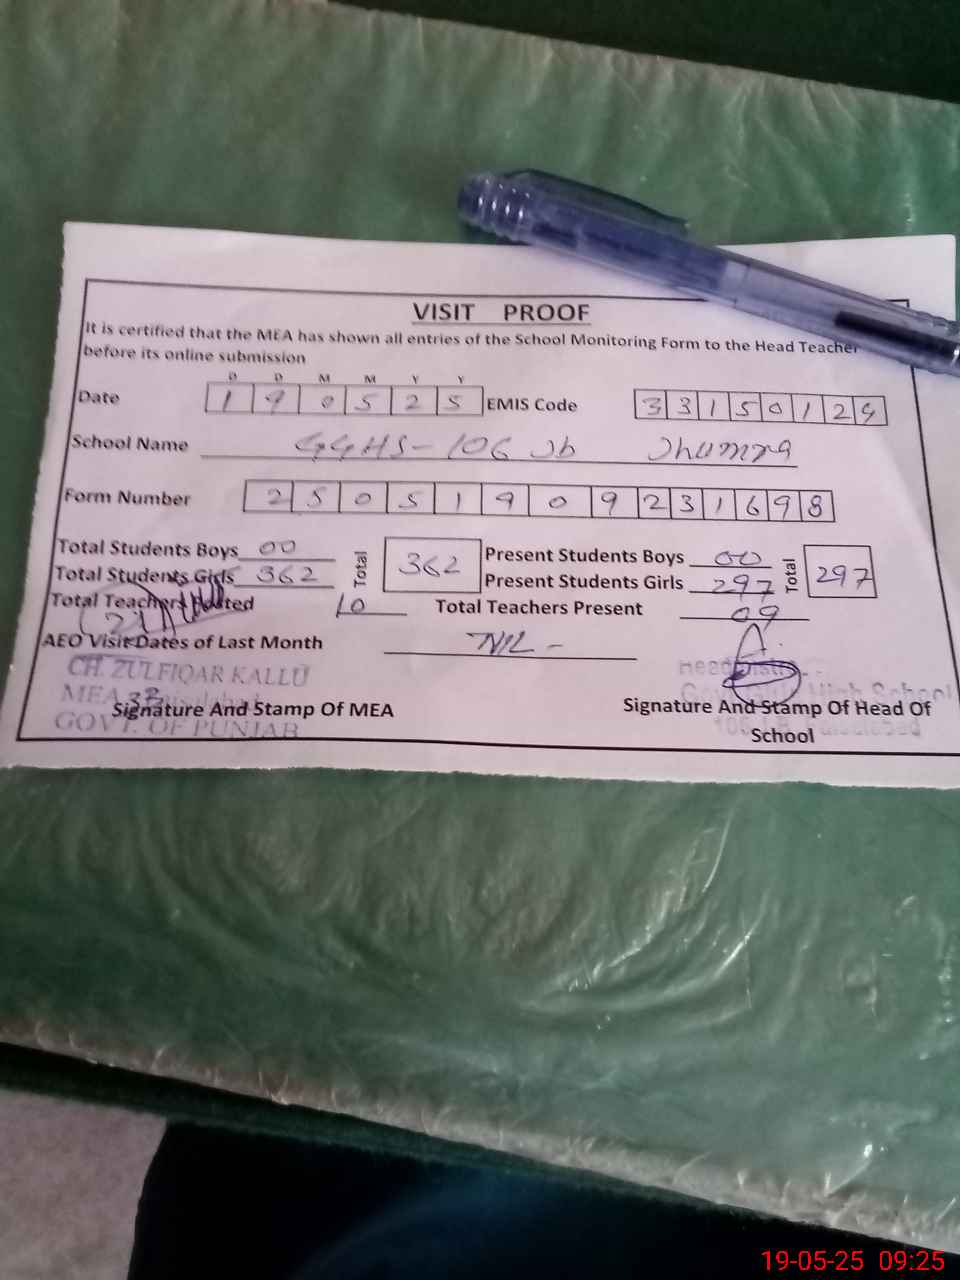 VISIT PROOF
It is certified that the MEA has shown all entries of the School Monitoring Form to the Head Teacher
before its online submission
D D M M Y Y
Date 1 9 0 5 2 5 EMIS Code 3 3 1 5 0 1 2 9
School Name GGHS-106 Jb Jhumra
Form Number 2 5 0 5 1 9 0 9 2 3 1 6 9 8
Total Students Boys 00 Total 362 Present Students Boys 00 Total 297
Total Students Girls 362 Present Students Girls 297
Total Teachers Posted 10 Total Teachers Present 09
AEO Visit Dates of Last Month NIL -
CH. ZULFIQAR KALLU
MEA 33
Signature And Stamp Of MEA Signature And Stamp Of Head Of
School
GOVT. OF PUNJAB
High School
19-05-25 09:25